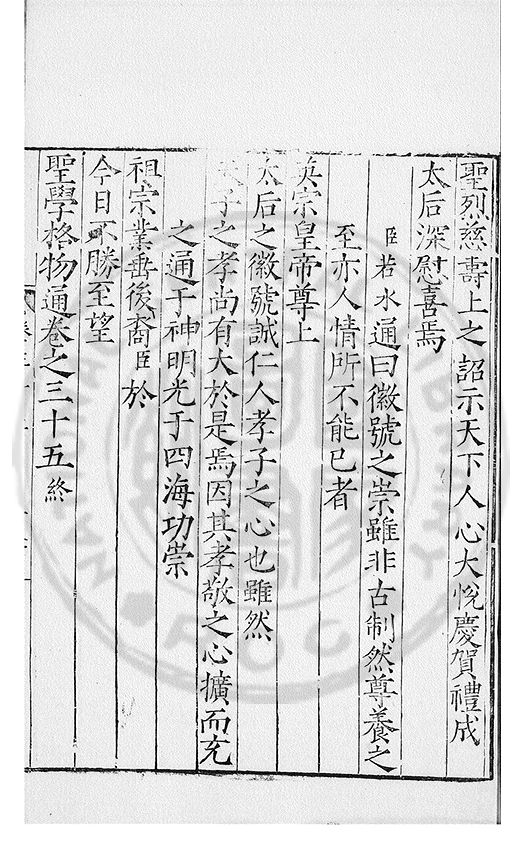 聖烈慈壽上之詔示天下人心大悅慶賀禮成
太后深慰喜焉
臣若水通曰徽號之崇雖非古制然尊養之
至亦人情所不能已者
英宗皇帝尊上
太后之徽號誠仁人孝子之心也雖然
子之孝尚有大於是焉因其孝敬之心擴而充
之通于神明光于四海功崇
祖宗業垂後裔臣於
今日不勝至望
聖學格物通卷之三十五終